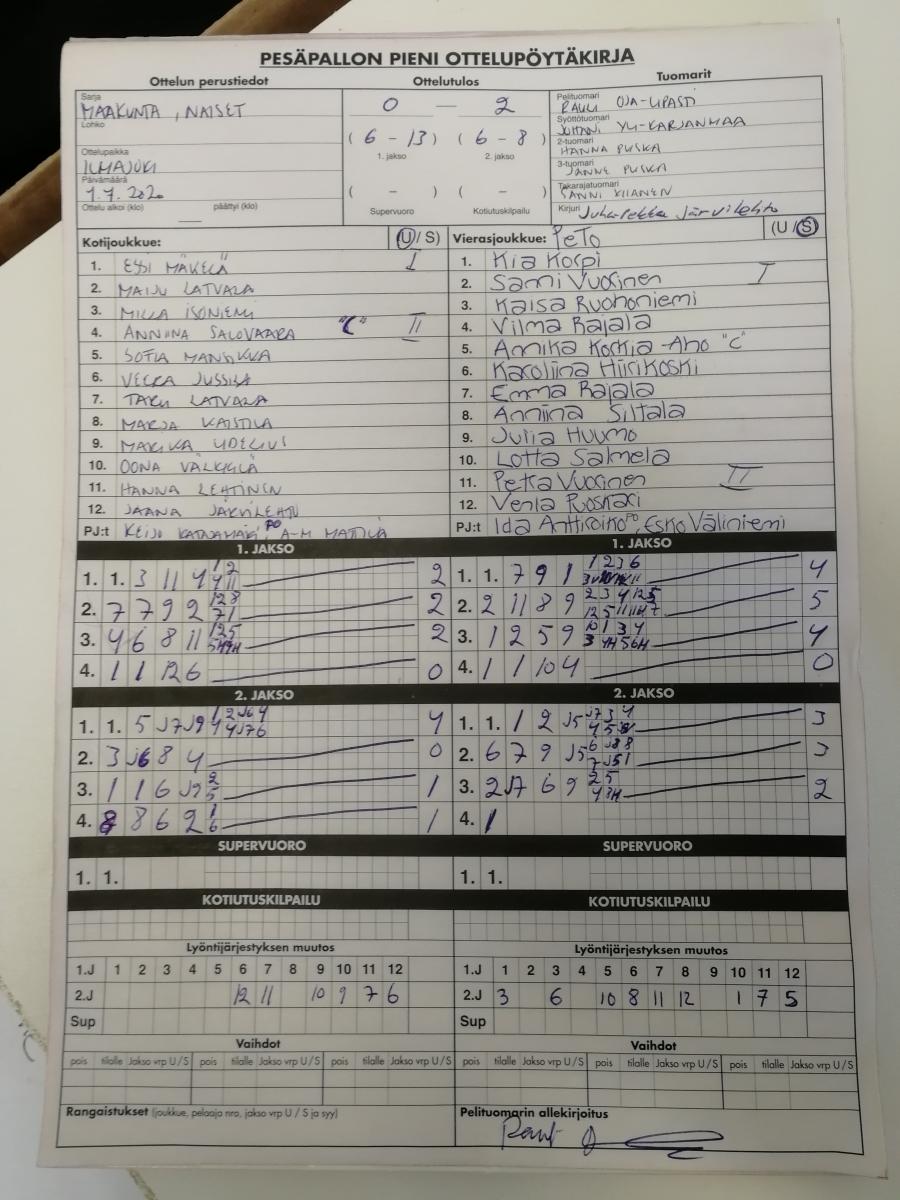 PESÄPALLON PIENI OTTELUPÖYTÄKIRJA
Ottelun perustiedot
Sarja
MAAKUNTA, NAISET
Lohko
Ottelupaikka
ILMAJOKI
Päivämäärä
1.7.2020
Ottelu alkoi (klo) päättyi (klo)
Ottelutulos
0 — 2
( 6 - 13 ) ( 6 - 8 )
1. jakso 2. jakso
( - ) ( - )
Supervuoro Kotiutuskilpailu
Tuomarit
Pelituomari
RAULI OJA-LIPASTI
Syöttötuomari
JUHANI YLI-KARJANMAA
2-tuomari
HANNA PUSKA
3-tuomari
JANNE PUSKA
Takarajatuomari
SANNI
Kirjuri Juhapekka Järvilehto
Kotijoukkue: (U/S)
1. ESSI MÄKELÄ I
2. MAIJU LATVALA
3. MILLA ISONIEMI
4. ANNIINA SALOVAARA "C" II
5. SOFIA MANSIKKA
6. VEERA JUSSILA
7. TARU LATVALA
8. MARJA
9. MARIKA UDELIUS
10. OONA VÄLKKILÄ
11. HANNA LEHTINEN
12. JAANA JÄRVILEHTO
PJ:t KEIJO KATAJAMÄKI PO, A-M MATTILA
Vierasjoukkue: PeTo (U/S)
1. Kia Korpi
2. Sanni Vuorinen I
3. Kaisa Ruohoniemi
4. Vilma Rajala
5. Annika Korkia-Aho "C"
6. Karoliina Hiirikoski
7. Emma Rajala
8. Anniina Siltala
9. Julia Huumo
10. Lotta Salmela
11. Petra Vuorinen II
12. Venla
PJ:t Ida Anttiroiko PO, Esko Väliniemi
1. JAKSO
1. 1. 3 11 4 2
2. 7 7 9 2 2
3. 4 6 8 11 2
4. 1 1 12 6 0
1. JAKSO
1. 1. 7 9 1 4
2. 2 11 8 9 5
3. 1 2 5 9 4
4. 1 1 10 4 0
2. JAKSO
1. 1. 5 J7 J9 4 4
2. 3 J6 8 4 0
3. 1 1 6 J9 1
4. 8 8 6 2 1
2. JAKSO
1. 1. 1 2 J5 3
2. 6 7 9 J5 3
3. 2 J7 6 9 2
4. 1
SUPERVUORO
1. 1.
SUPERVUORO
1. 1.
KOTIUTUSKILPAILU
KOTIUTUSKILPAILU
Lyöntijärjestyksen muutos
1.J 1 2 3 4 5 6 7 8 9 10 11 12
2.J 12 11 10 9 7 6
Sup
Lyöntijärjestyksen muutos
1.J 1 2 3 4 5 6 7 8 9 10 11 12
2.J 3 6 10 8 11 12 1 7 5
Sup
Vaihdot
pois tilalle Jakso vrp U/S pois tilalle Jakso vrp U/S pois tilalle Jakso vrp U/S
Vaihdot
pois tilalle Jakso vrp U/S pois tilalle Jakso vrp U/S pois tilalle Jakso vrp U/S
Rangaistukset (joukkue, pelaaja nro, jakso vrp U / S ja syy)
Pelituomarin allekirjoitus